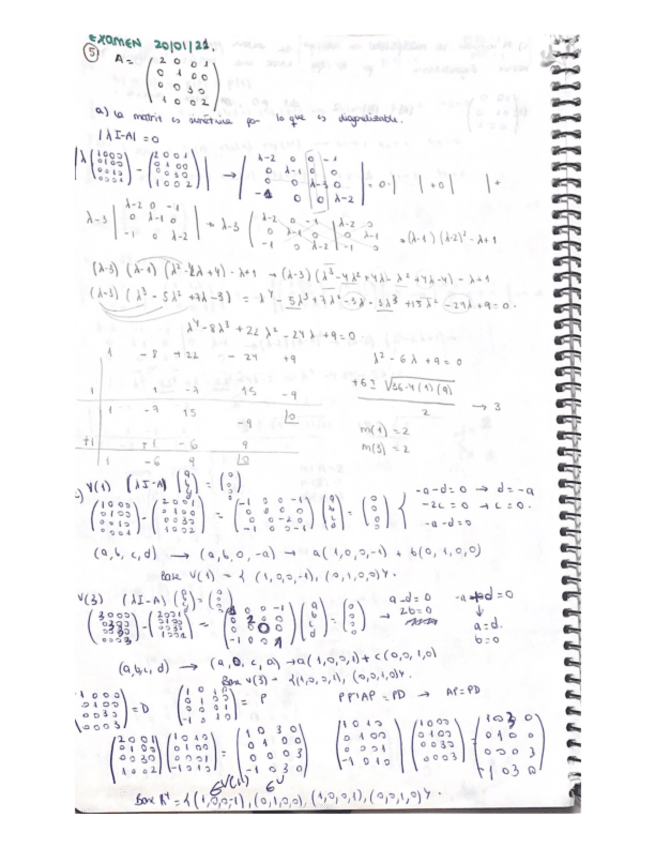 EXAMEN 20/01/21.
5
A = (2 0 0 1
0 1 0 0
0 0 3 0
1 0 0 2)
a) La matriz es simétrica por lo que es diagonalizable.
|λI-A| = 0
|λ(1000 0100 0010 0001) - (2001 0100 0030 1002)| → |λ-2 0 0 -1
0 λ-1 0 0
0 0 λ-3 0
-1 0 0 λ-2| = 0·| | +0| | +
λ-3 |λ-2 0 -1
0 λ-1 0
-1 0 λ-2| = λ-3 (λ-2 0 -1 | λ-2 0
0 λ-1 0 | 0 λ-1
-1 0 λ-2 | -1 0 = (λ-1)(λ-2)² - λ+1
(λ-3) (λ-1) (λ²-4λ+4) - λ+1 → (λ-3) (λ³-4λ²+4λ-λ²+4λ-4) - λ+1
(λ-3) (λ³-5λ²+7λ-3) = λ⁴-5λ³+7λ²-3λ-3λ³+15λ²-21λ+9=0.
λ⁴-8λ³+22λ²-24λ+9=0
1 -8 +22 -24 +9
λ²-6λ+9=0
1 1 -7 15 -9
+6± √36-4(1)(9) / 2 → 3
1 -7 15 -9 0
m(1)=2
+1 +1 -6 9
m(3)=2
1 -6 9 0
V(1) (λI-A) (a b c d) = (0 0 0 0)
(1000 0100 0010 0001) - (2001 0100 0030 1002) = (-1 0 0 -1
0 0 0 0
0 0 -2 0
-1 0 0 -1) (a b c d) = (0 0 0 0) { -a-d=0 → d=-a
-2c=0 → c=0.
-a-d=0
(a,b,c,d) → (a,b,0,-a) → a(1,0,0,-1) + b(0,1,0,0)
Base V(1) = {(1,0,0,-1), (0,1,0,0)}.
V(3) (λI-A) = (0 0 0 0)
a-d=0
2b=0
-a+d=0
↓
a=d.
b=0
(a,b,c,d) → (a,0,c,a) → a(1,0,0,1)+c(0,0,1,0)
Base V(3) = {(1,0,0,1), (0,0,1,0)}.
(1000 0100 0030 0003) = D
(1 0 1 0
0 1 0 0
0 0 0 1
-1 0 1 0) = P
PP⁻¹AP = PD → AP=PD
(2001 0100 0030 1002) (1010 0100 0001 -1010) = (1 0 3 0
0 1 0 0
0 0 0 3
-1 0 3 0)
(1010 0100 0001 -1010) (1000 0100 0030 0003) = (1 0 3 0
0 1 0 0
0 0 0 3
-1 0 3 0)
Base R⁴ = {(1,0,0,-1), (0,1,0,0), (1,0,0,1), (0,0,1,0)}.